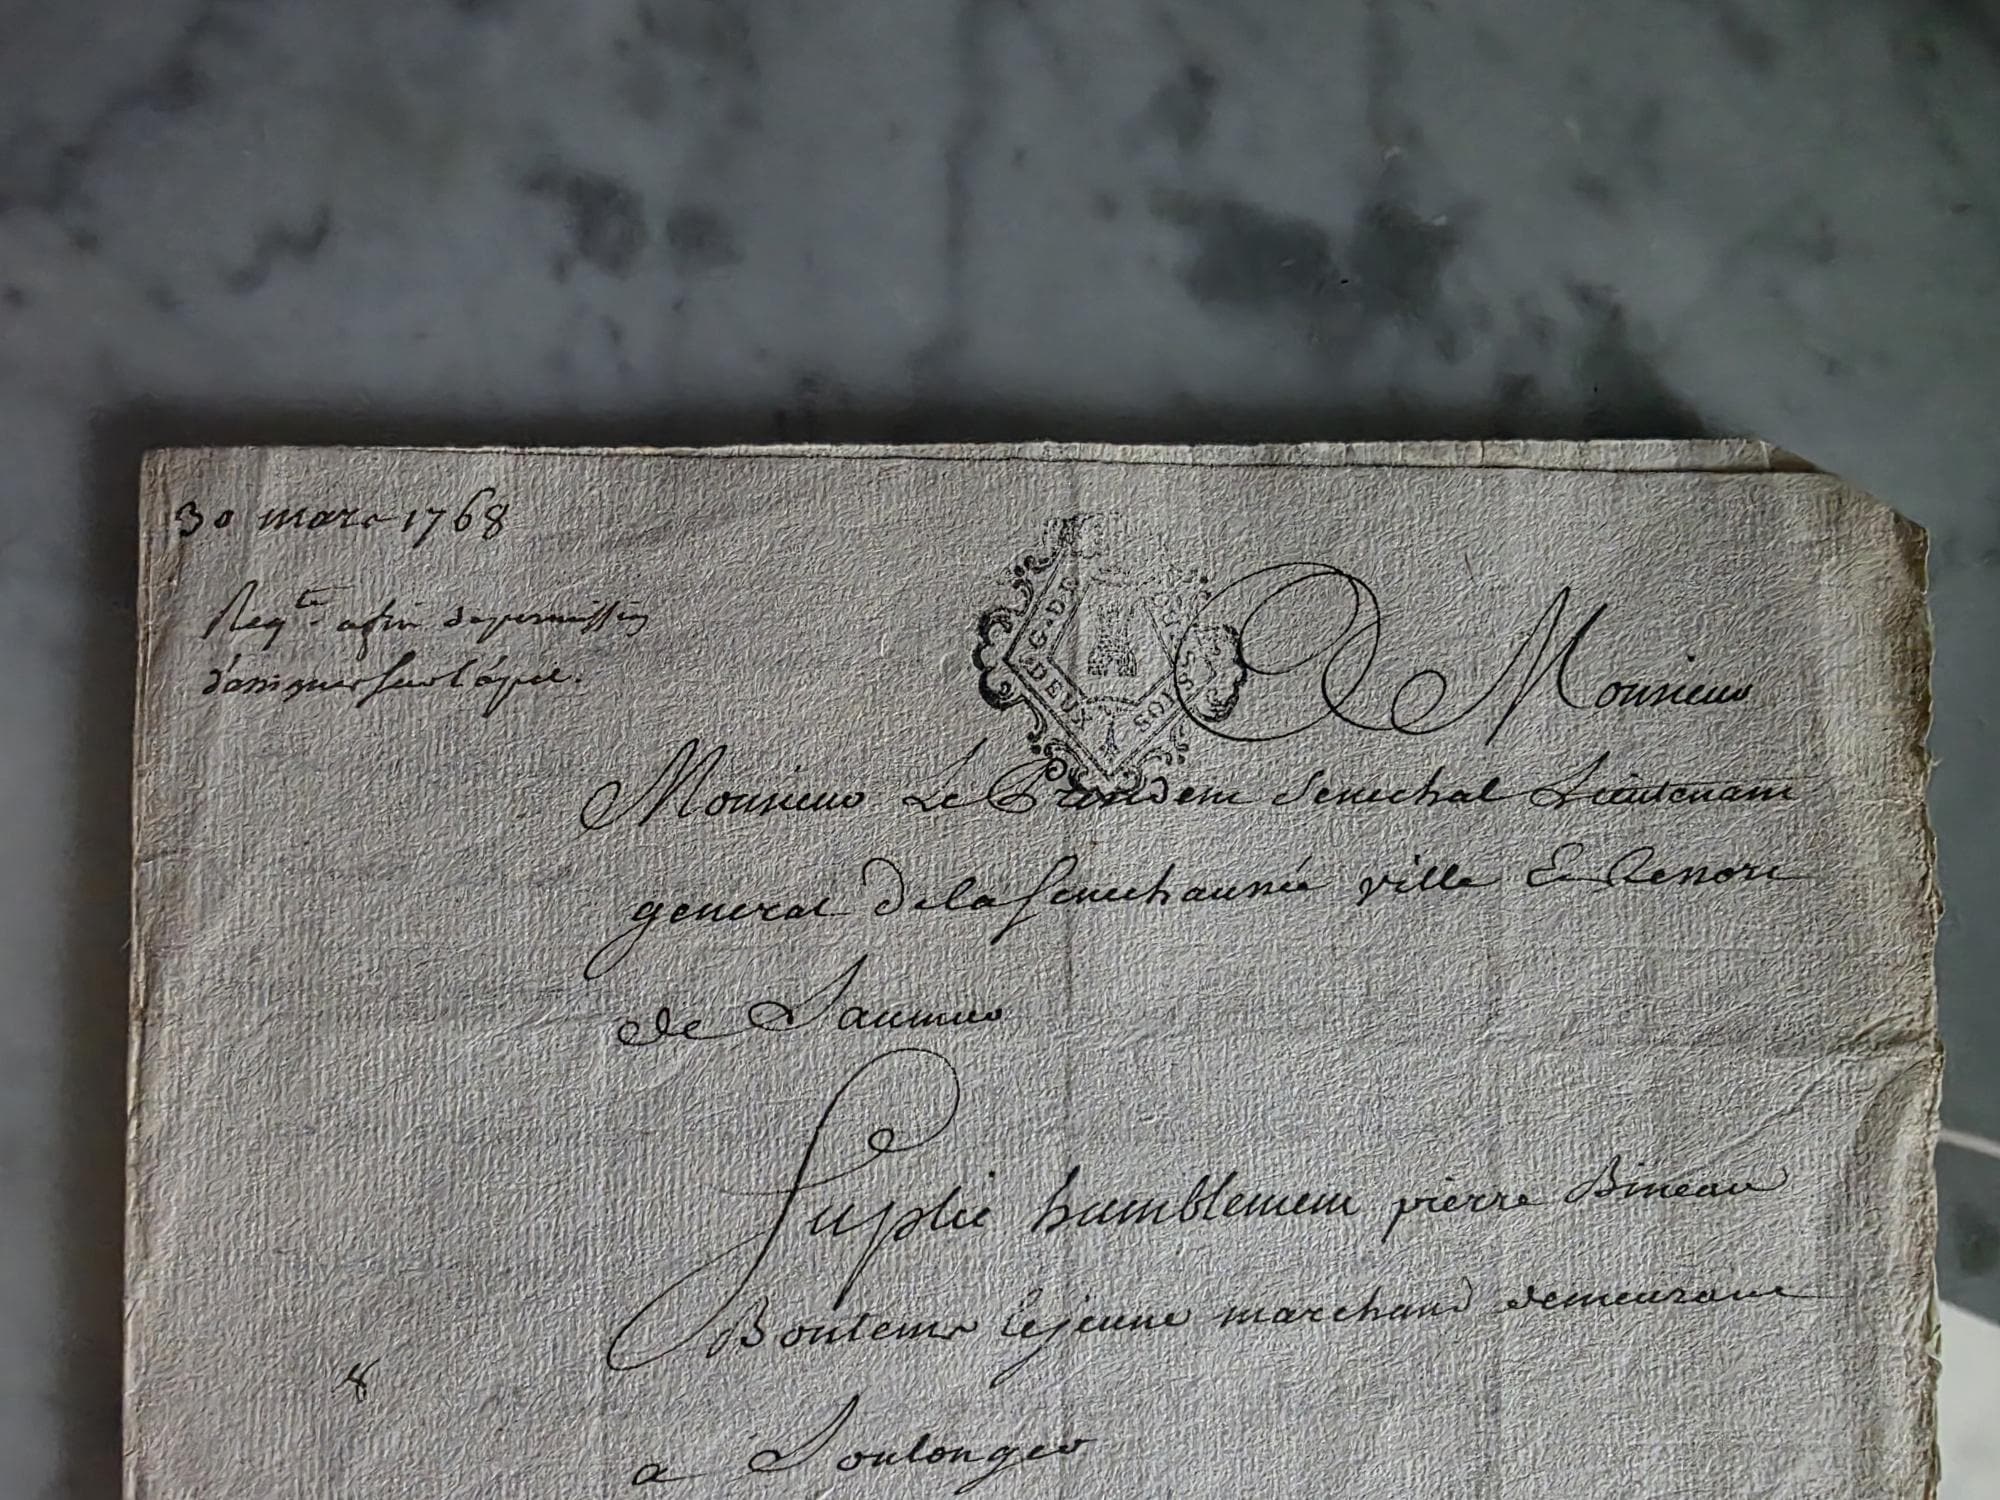 30 mars 1768
Reqte afin de permission
d'assigner sur l'apel.
A Monsieur
Monsieur Le President Senechal Lieutenant
general de la Senechaussée ville Et Ressort
de Saumur
DEUX SOLS
Suplie humblement pierre Bineau
Boutemr lejeune marchand demeurant
8
a Doulonger